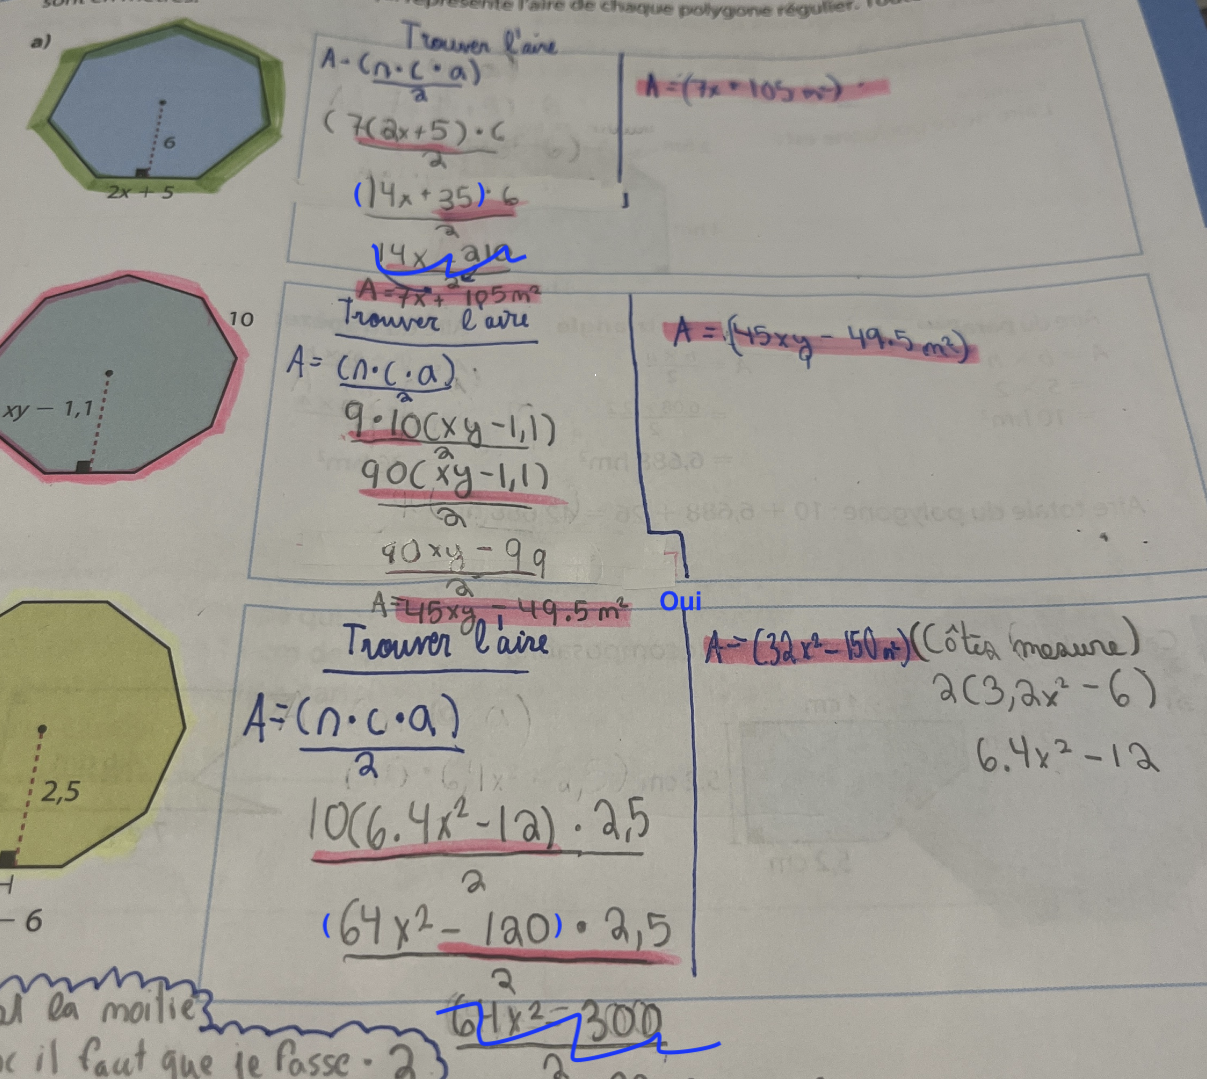 représente l'aire de chaque polygone régulier.
a)
6
2x + 5
Trouver l'aire
A = (n·c·a)
2
(7(2x+5)·6
2
(14x+35)·6
2
14x 210
2
A=7x+ 105m²
A=(7x+105m²)
10
xy – 1,1
Trouver l'aire
A= (n·c·a)
2
9·10(xy-1,1)
2
90(xy-1,1)
2
90xy - 99
2
A=45xy - 49.5m²
A=(45xy - 49.5m²)
Oui
2,5
– 6
Trouver l'aire
A=(n·c·a)
2
10(6.4x²-12)·2,5
2
(64x²- 120)·2,5
2
64x²-300
2
A=(32x²-150m²)(Côtés mesure)
2(3,2x²-6)
6.4x²-12
la moitié
il faut que je fasse · 2